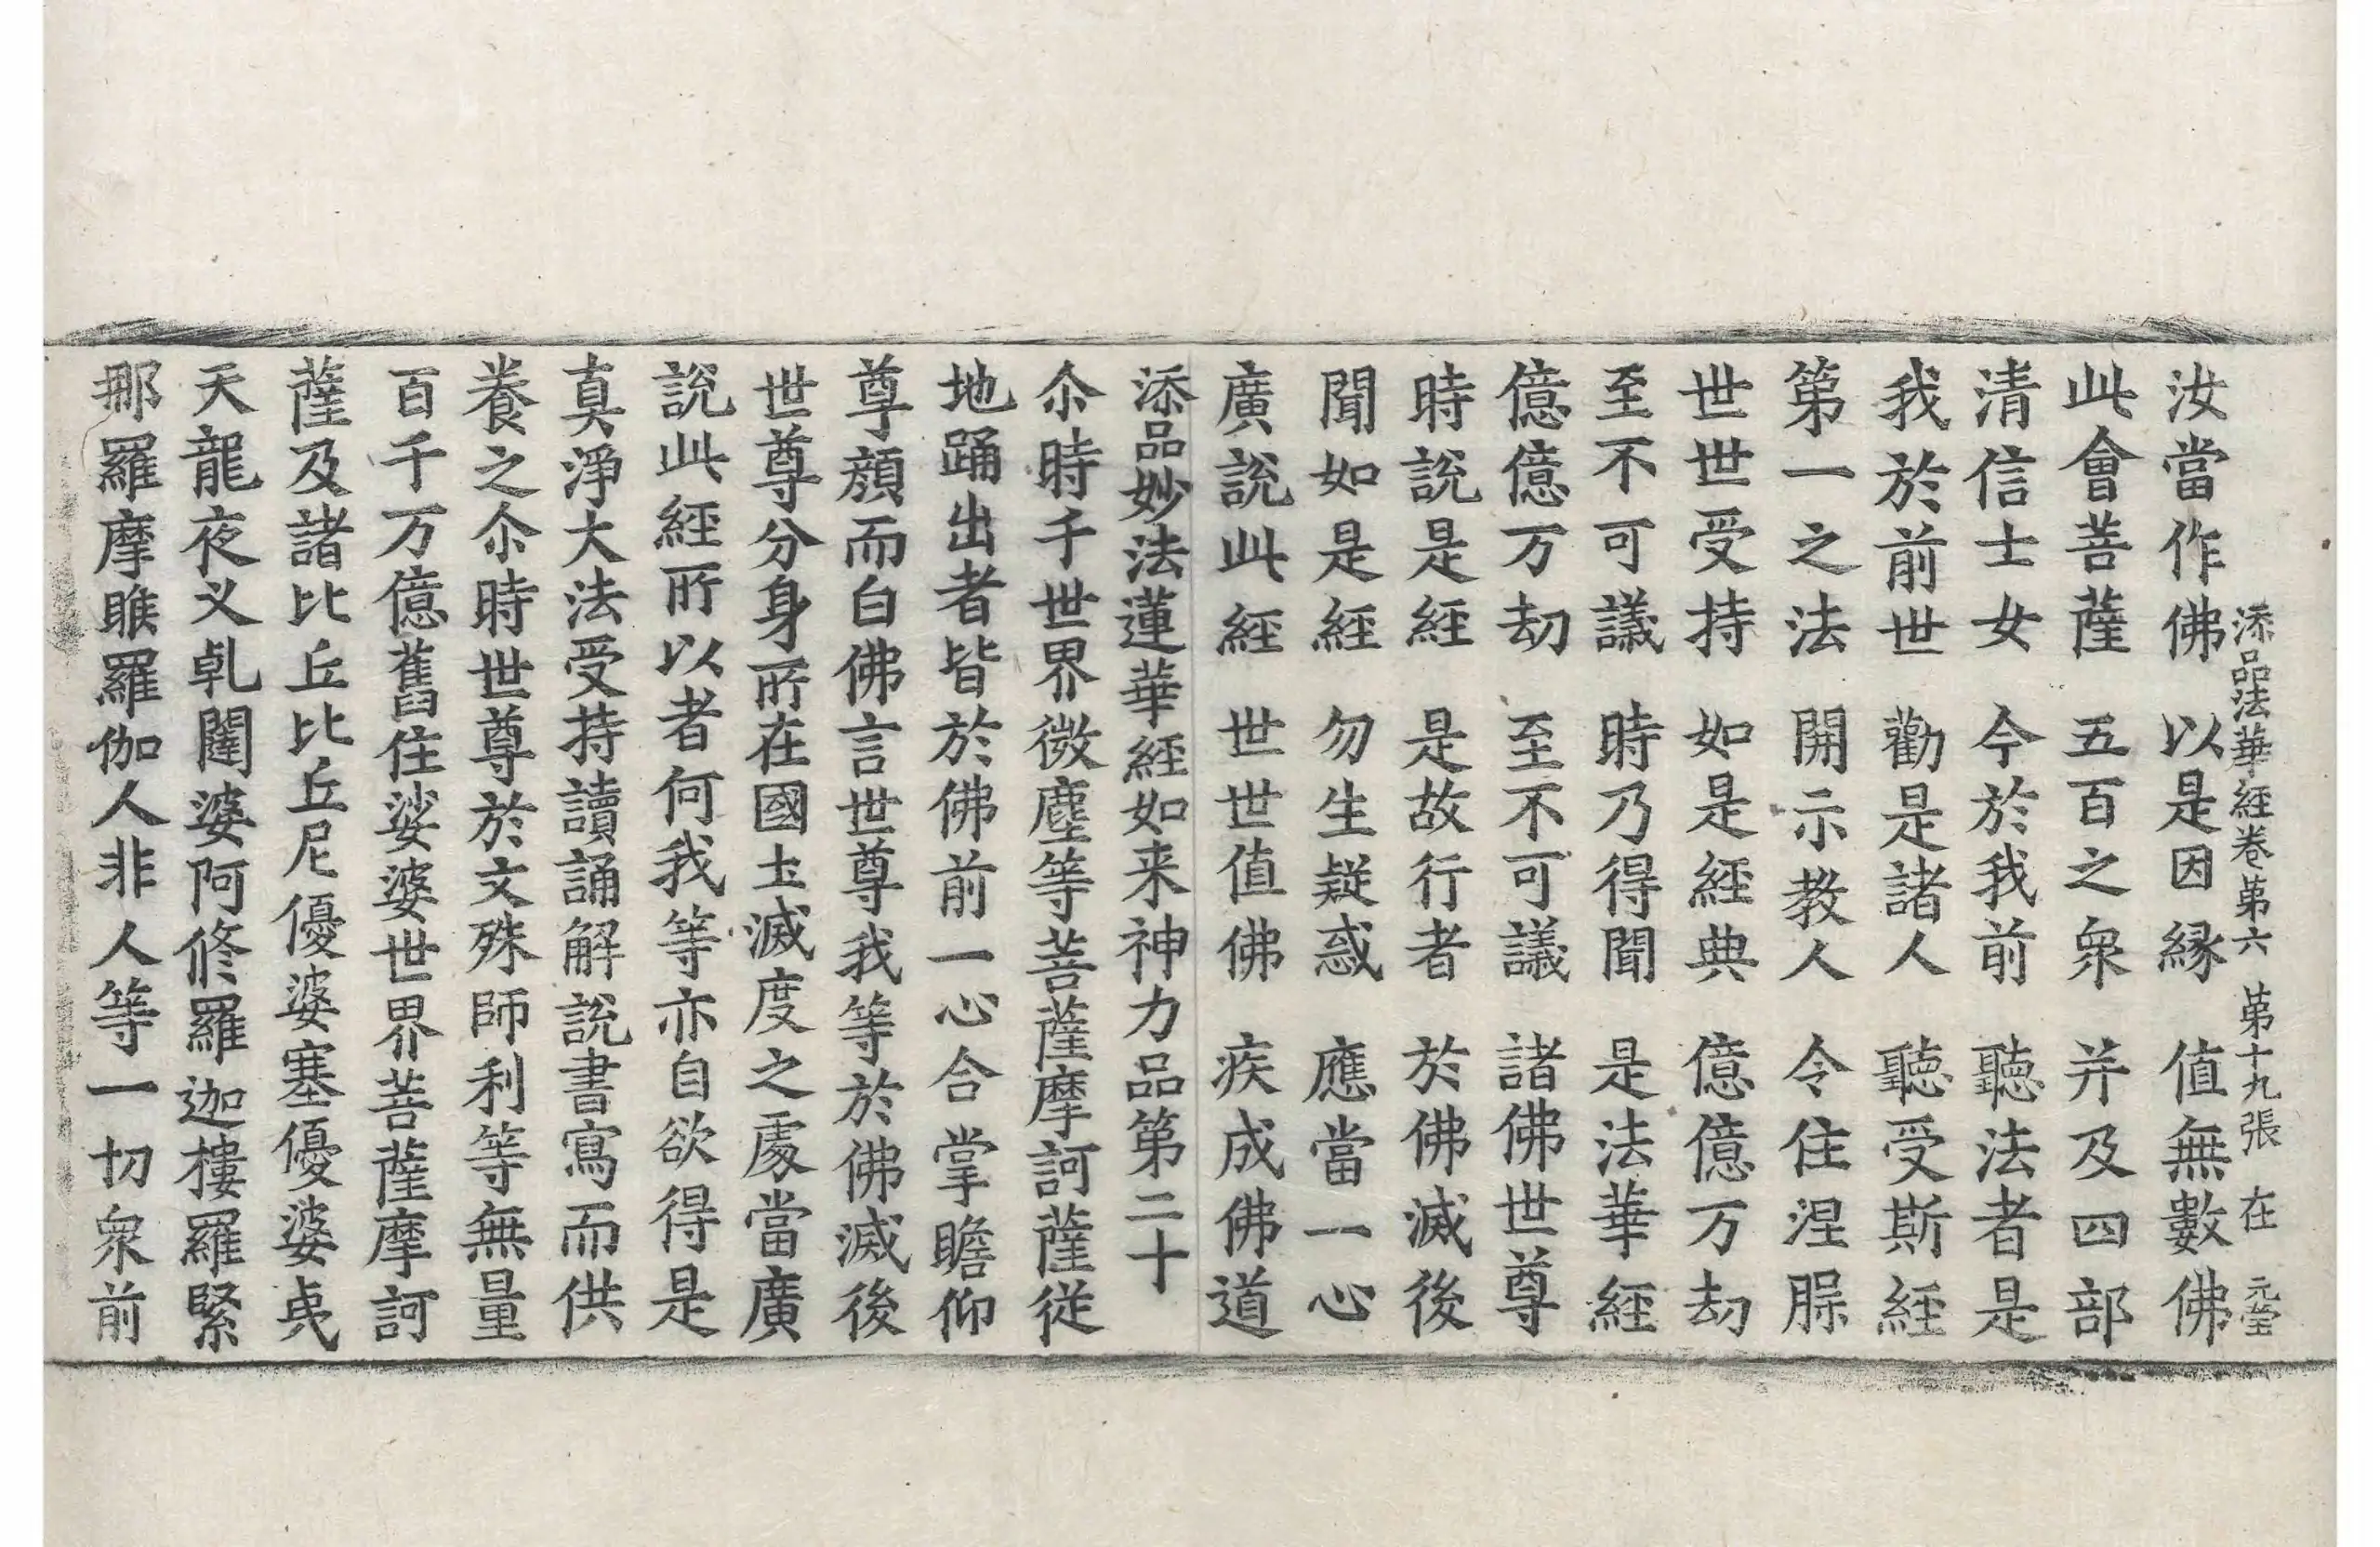 添品法華經卷第六 第十九張 在 元瑩
汝當作佛 以是因縁 值無數佛
此會菩薩 五百之衆 并及四部
清信士女 今於我前 聽法者是
我於前世 勸是諸人 聽受斯經
第一之法 開示教人 令住涅槃
世世受持 如是經典 億億万劫
至不可議 時乃得聞 是法華經
億億万劫 至不可議 諸佛世尊
時說是經 是故行者 於佛滅後
聞如是經 勿生疑惑 應當一心
廣說此經 世世值佛 疾成佛道
添品妙法蓮華經如来神力品第二十
尒時千世界微塵等菩薩摩訶薩從
地踊出者皆於佛前一心合掌瞻仰
尊顔而白佛言世尊我等於佛滅後
世尊分身所在國土滅度之處當廣
說此經所以者何我等亦自欲得是
真淨大法受持讀誦解說書寫而供
養之尒時世尊於文殊師利等無量
百千万億舊住娑婆世界菩薩摩訶
薩及諸比丘比丘尼優婆塞優婆夷
天龍夜叉乹闥婆阿修羅迦樓羅緊
那羅摩睺羅伽人非人等一切衆前